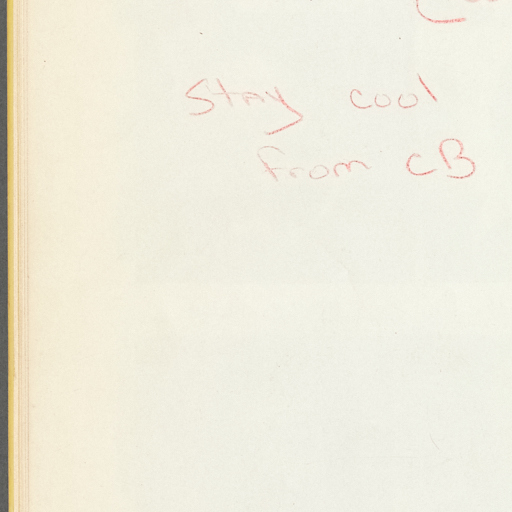 Stay cool
from CB